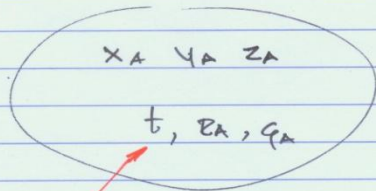 x_A y_A z_A
t, z_A, q_A